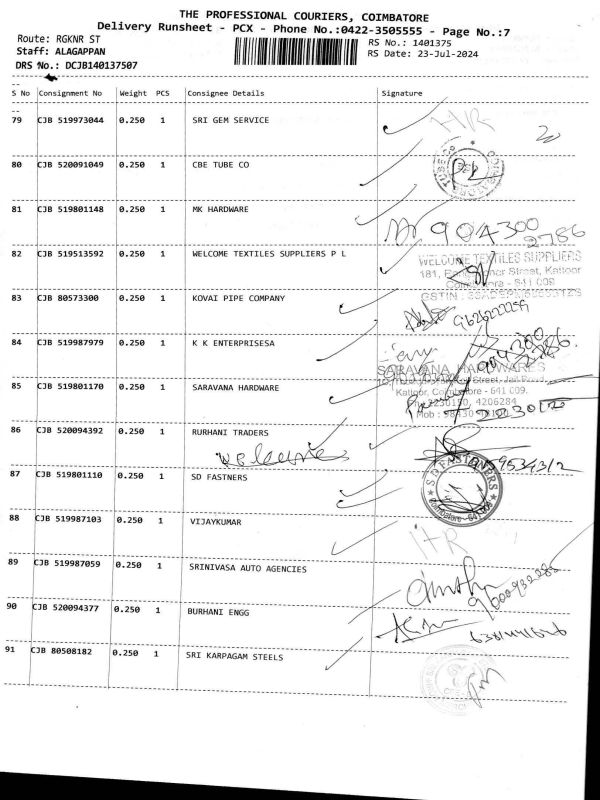 THE PROFESSIONAL COURIERS, COIMBATORE
Delivery Runsheet - PCX - Phone No.:0422-3505555 - Page No.:7
Route: RGKNR ST
RS No.: 1401375
Staff: ALAGAPPAN
RS Date: 23-Jul-2024
DRS No.: DCJB140137507
S No Consignment No Weight PCS Consignee Details Signature
79 CJB 519973044 0.250 1 SRI GEM SERVICE
80 CJB 520091049 0.250 1 CBE TUBE CO
81 CJB 519801148 0.250 1 MK HARDWARE
904300
2786
82 CJB 519513592 0.250 1 WELCOME TEXTILES SUPPLIERS P L
WELCOME TEXTILES SUPPLIERS
Street, Kattoor
Coimbatore - 641 009
83 CJB 80573300 0.250 1 KOVAI PIPE COMPANY
84 CJB 519987979 0.250 1 K K ENTERPRISESA
SARAVANA HARDWARES
85 CJB 519801170 0.250 1 SARAVANA HARDWARE
Kattoor, Coimbatore - 641 009.
86 CJB 520094392 0.250 1 RURHANI TRADERS
87 CJB 519801110 0.250 1 SD FASTNERS
S D FASTENERS
88 CJB 519987103 0.250 1 VIJAYKUMAR
89 CJB 519987059 0.250 1 SRINIVASA AUTO AGENCIES
90 CJB 520094377 0.250 1 BURHANI ENGG
91 CJB 80508182 0.250 1 SRI KARPAGAM STEELS